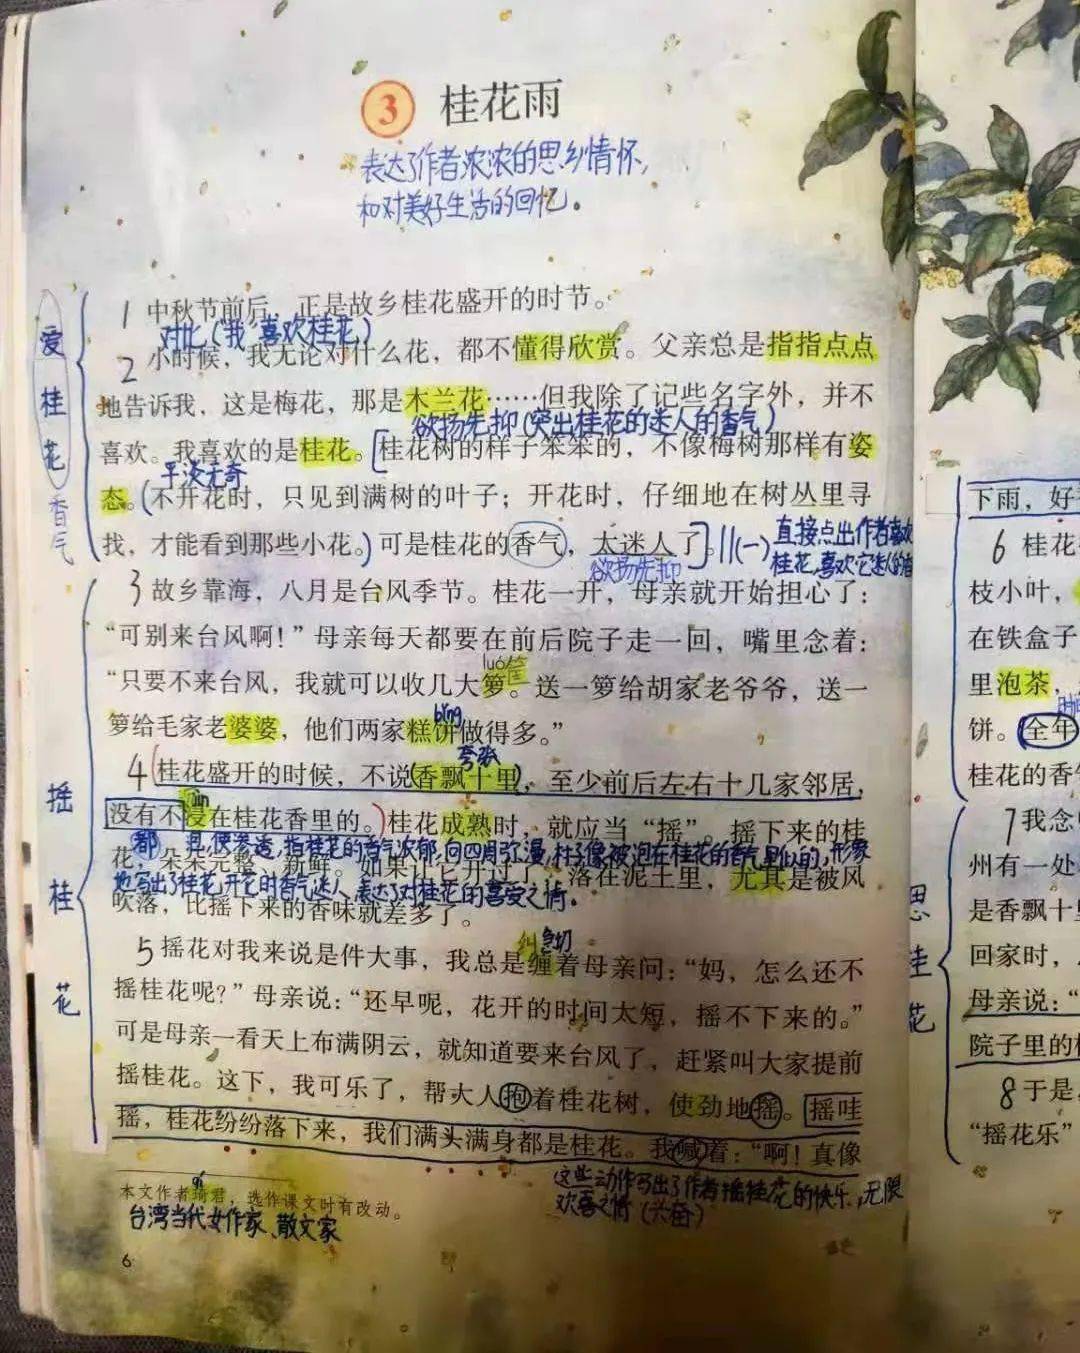 3 桂花雨
表达了作者浓浓的思乡情怀,
和对美好生活的回忆。
爱桂花
香气
1 中秋节前后，正是故乡桂花盛开的时节。
对比(我喜欢桂花)
2 小时候，我无论对什么花，都不懂得欣赏。父亲总是指指点点
地告诉我，这是梅花，那是木兰花……但我除了记些名字外，并不
欲扬先抑(突出桂花的迷人的香气)
喜欢。我喜欢的是桂花。[桂花树的样子笨笨的，不像梅树那样有姿
平淡无奇
态。(不开花时，只见到满树的叶子；开花时，仔细地在树丛里寻
找，才能看到那些小花。)可是桂花的香气，太迷人了。]||(一)
直接点出作者喜欢
桂花,喜欢它迷人的香
欲扬先抑
摇桂花
3 故乡靠海，八月是台风季节。桂花一开，母亲就开始担心了：
“可别来台风啊！”母亲每天都要在前后院子走一回，嘴里念着：
luó筐
“只要不来台风，我就可以收几大箩。送一箩给胡家老爷爷，送一
bǐng
箩给毛家老婆婆，他们两家糕饼做得多。”
夸张
4 (桂花盛开的时候，不说(香飘十里)，至少前后左右十几家邻居，
没有不浸在桂花香里的。)桂花成熟时，就应当“摇”。摇下来的桂
都
使渗透,指桂花的香气浓郁,向四周弥漫,村子像被泡在桂花的香气里似的,形象
花，朵朵完整、新鲜。如果让它开过了，落在泥土里，尤其是被风
地写出了桂花开花时香气迷人,表达了对桂花的喜爱之情。
吹落，比摇下来的香味就差多了。
纠 急切
5 摇花对我来说是件大事，我总是缠着母亲问：“妈，怎么还不
摇桂花呢？”母亲说：“还早呢，花开的时间太短，摇不下来的。”
可是母亲一看天上布满阴云，就知道要来台风了，赶紧叫大家提前
摇桂花。这下，我可乐了，帮大人抱着桂花树，使劲地摇。摇哇
摇，桂花纷纷落下来，我们满头满身都是桂花。我喊着：“啊！真像
这些动作写出了作者摇桂花的快乐,无限
欢喜之情
本文作者琦君，选作课文时有改动。
qí
台湾当代女作家、散文家
6
下雨，好
6 桂花
枝小叶，
在铁盒子
里泡茶，
饼。全年
桂花的香
思桂花
7 我念
州有一处
是香飘十
回家时，
母亲说：“
院子里的
8 于是
“摇花乐”